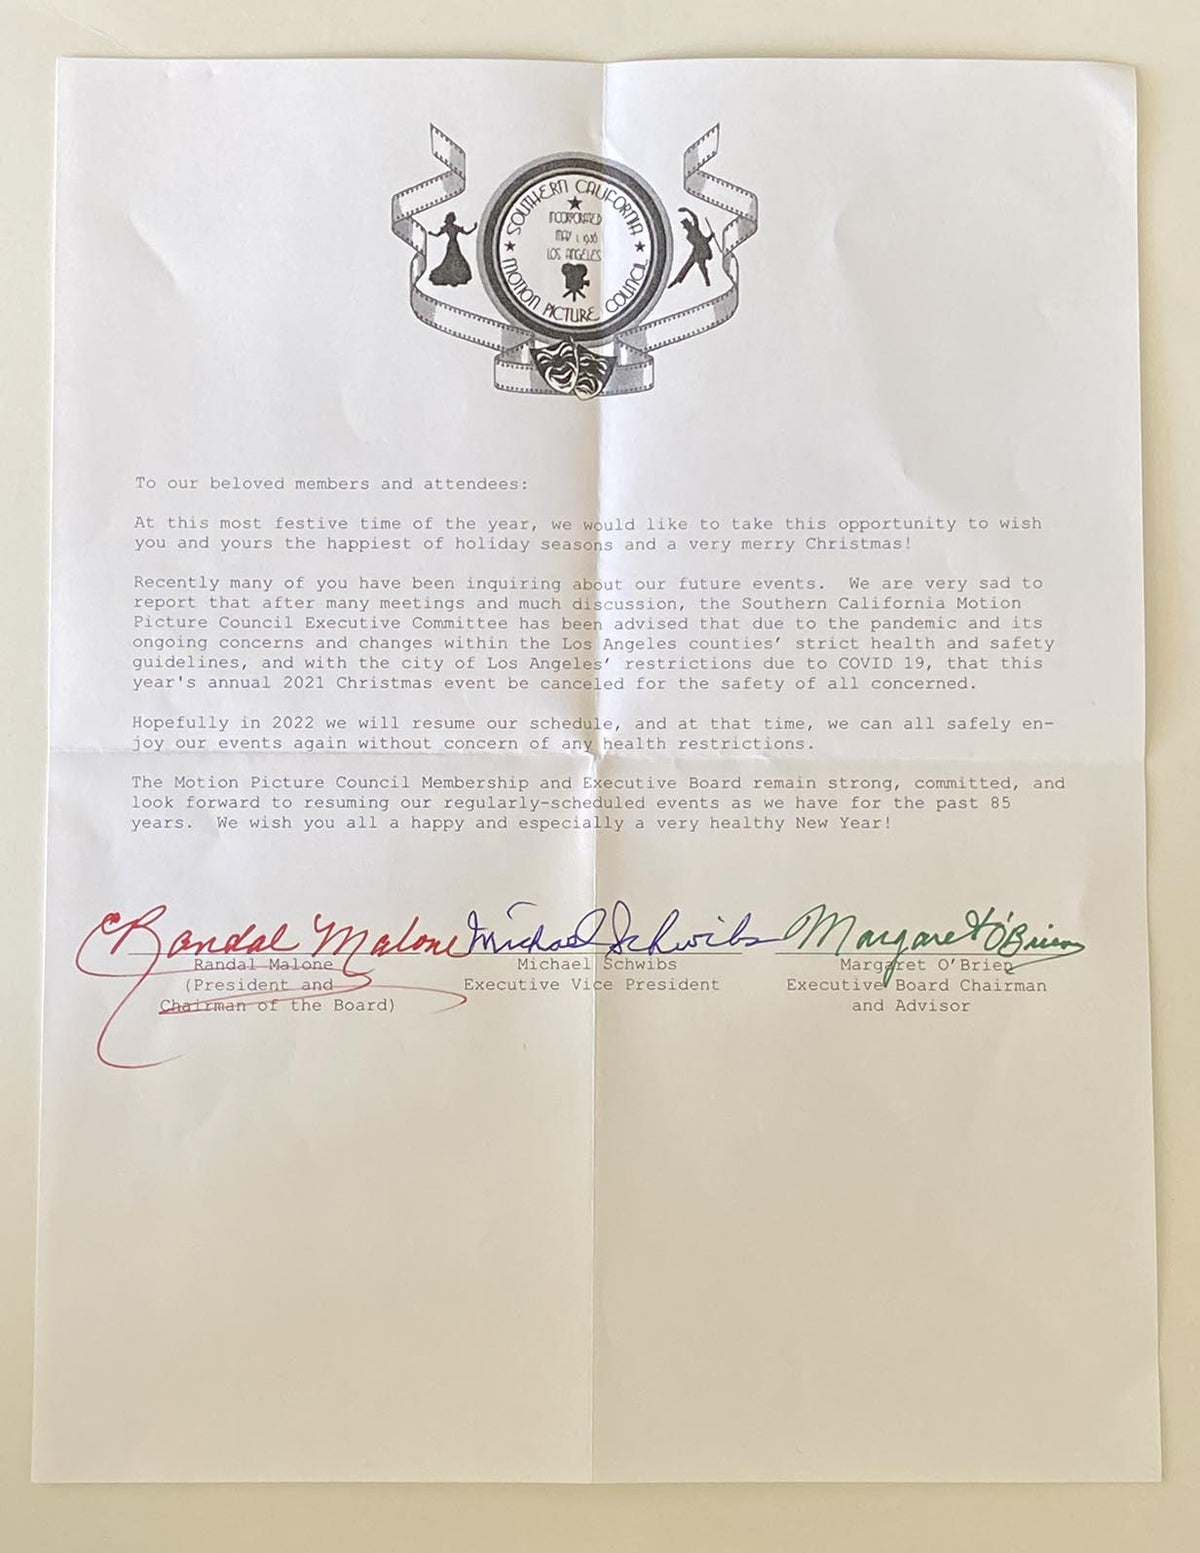 SOUTHERN CALIFORNIA
INCORPORATED
MAY 1, 1936
LOS ANGELES
MOTION PICTURE COUNCIL
To our beloved members and attendees:
At this most festive time of the year, we would like to take this opportunity to wish
you and yours the happiest of holiday seasons and a very merry Christmas!
Recently many of you have been inquiring about our future events.  We are very sad to
report that after many meetings and much discussion, the Southern California Motion
Picture Council Executive Committee has been advised that due to the pandemic and its
ongoing concerns and changes within the Los Angeles counties’ strict health and safety
guidelines, and with the city of Los Angeles’ restrictions due to COVID 19, that this
year's annual 2021 Christmas event be canceled for the safety of all concerned.
Hopefully in 2022 we will resume our schedule, and at that time, we can all safely en-
joy our events again without concern of any health restrictions.
The Motion Picture Council Membership and Executive Board remain strong, committed, and
look forward to resuming our regularly-scheduled events as we have for the past 85
years.  We wish you all a happy and especially a very healthy New Year!
Randal Malone Michael Schwibs Margaret O'Brien
Randal Malone Michael Schwibs Margaret O’Brien
(President and Executive Vice President Executive Board Chairman
Chairman of the Board) and Advisor